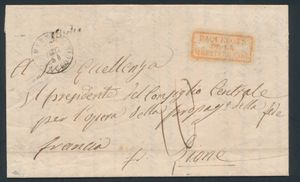 PAQUEBOTS
DE LA
MEDITERRANEE
A Sua Eccellenza
Il presidente del Consiglio Centrale
per l'opera della propag. della fede
francia
Lione